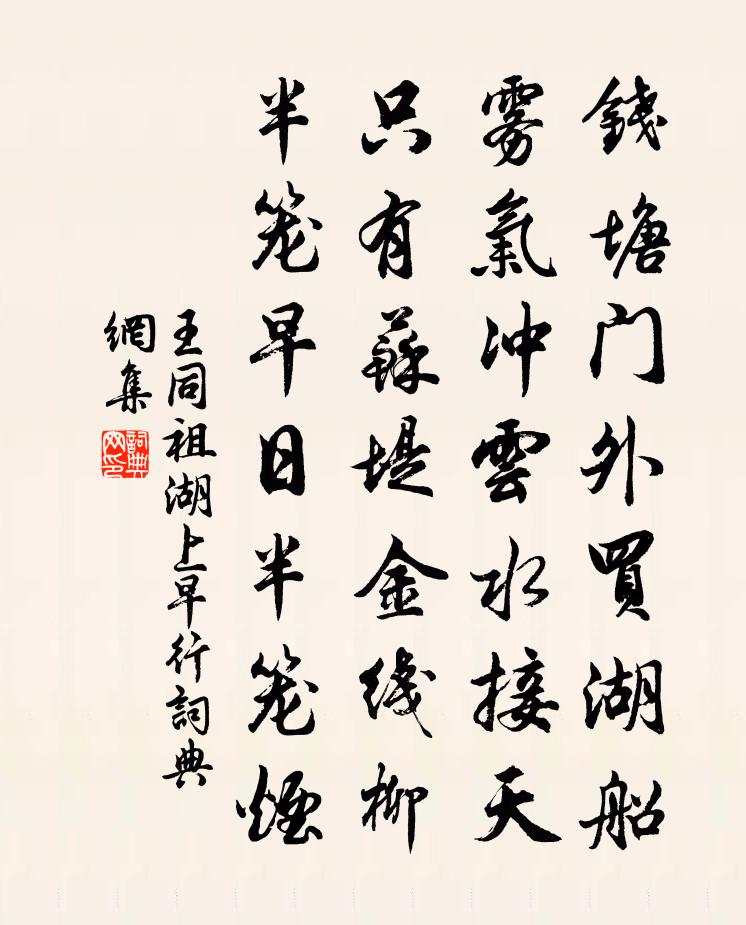 錢塘门外買湖船
雾氣冲雲水接天
只有蘇堤金线柳
半笼早日半笼煙
王同祖湖上早行詞典
網集
詞典网印